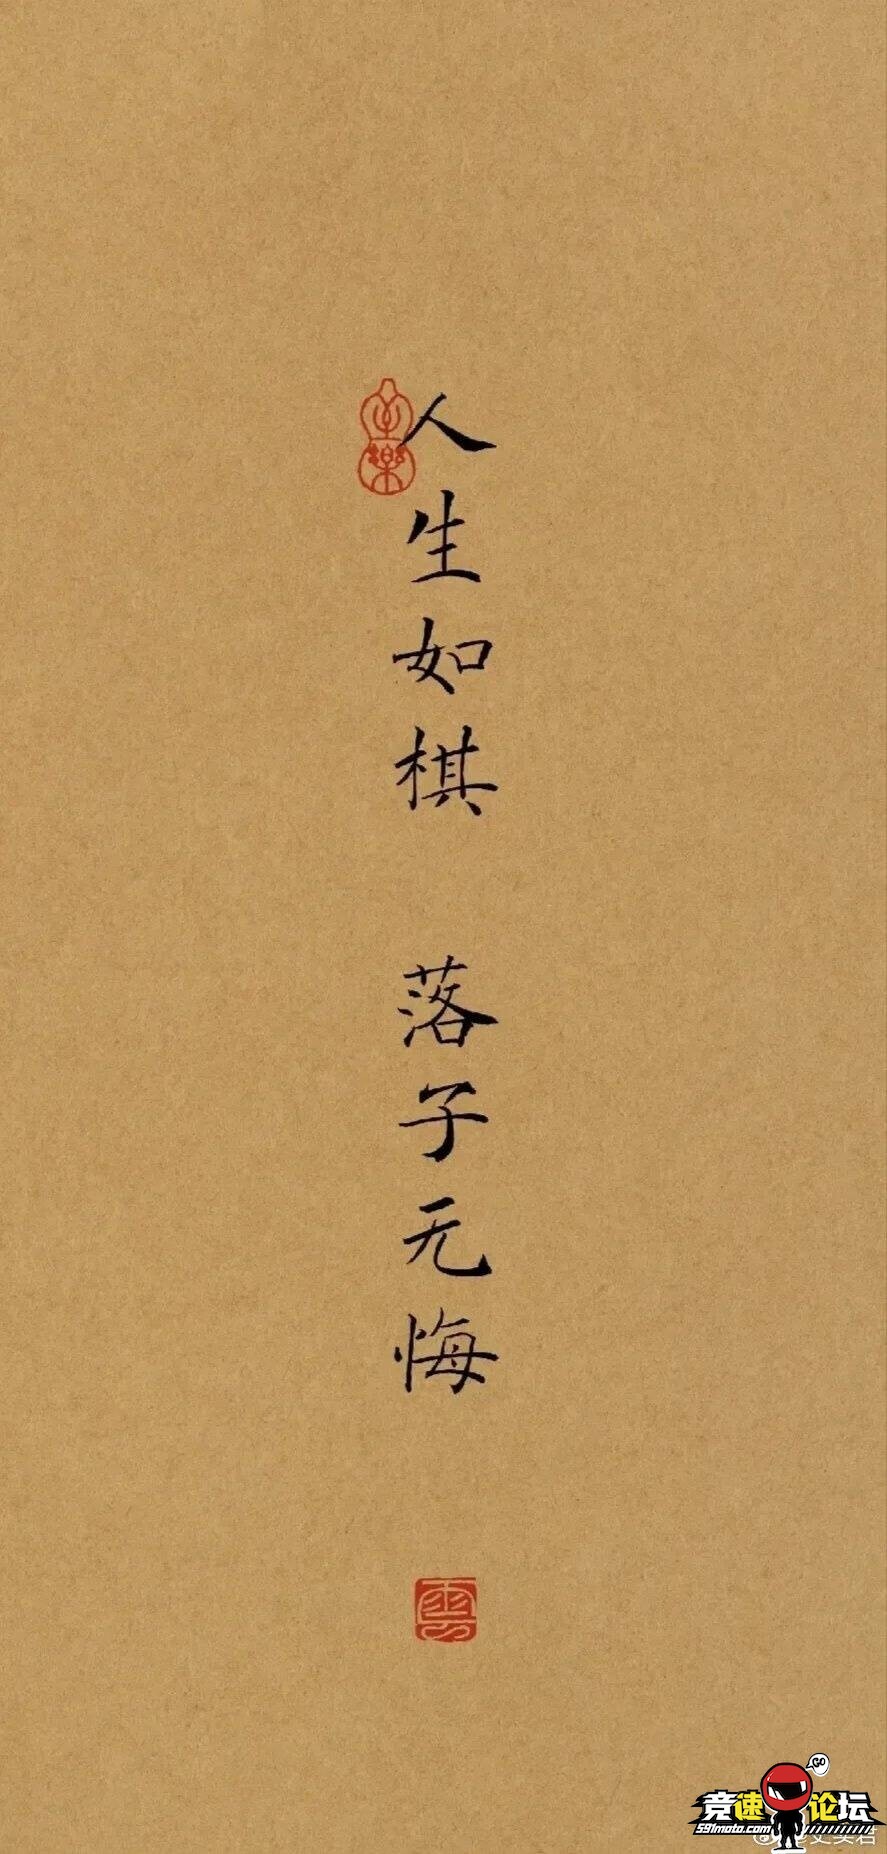 人生如棋
落子无悔
雲
GO
竞速论坛
591moto.com